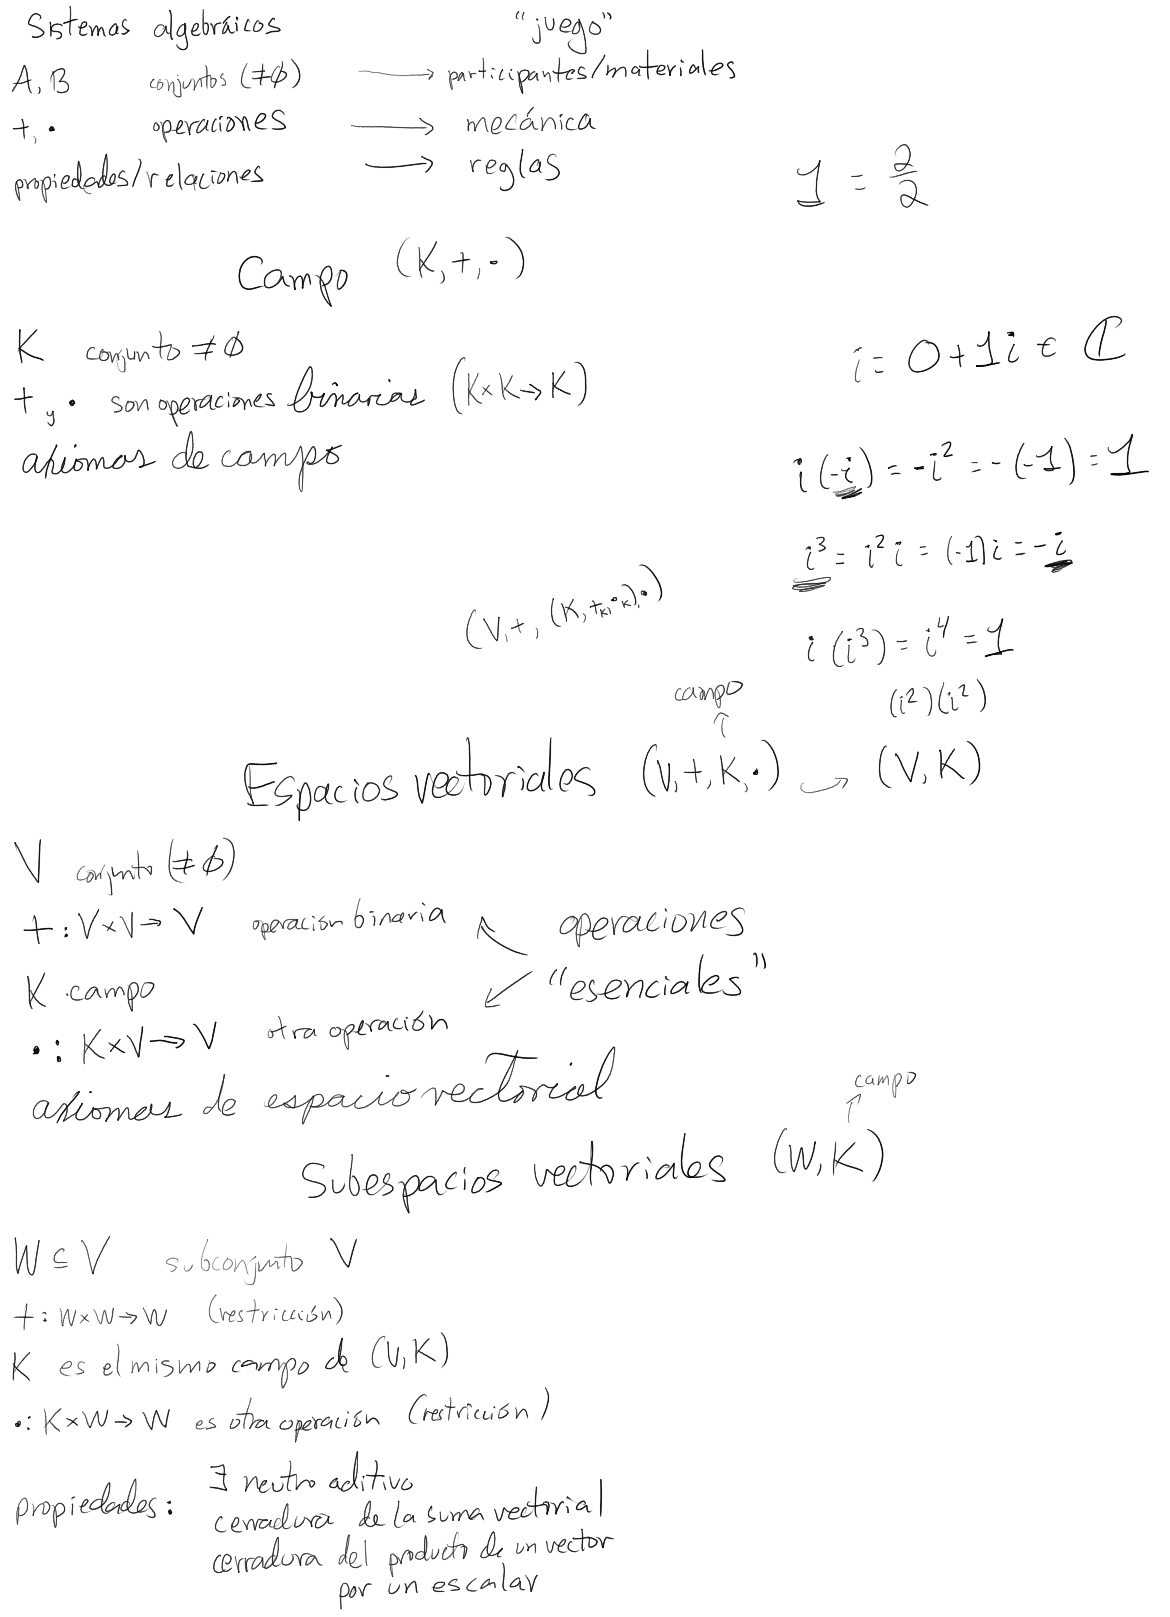 Sistemas algebráicos "juego"
A, B conjuntos (≠∅) → participantes/materiales
+, · operaciones → mecánica
propiedades/relaciones → reglas
1 = 2/2
Campo (K, +, ·)
K conjunto ≠ ∅
+ y · son operaciones binarias (K×K→K)
axiomas de campo
i = 0+1i ∈ ℂ
i(-i) = -i² = -(-1) = 1
i³ = i² i = (-1)i = -i
(V, +, (K, +ₖ, ·ₖ), ·)
i (i³) = i⁴ = 1
(i²)(i²)
campo
↑
Espacios vectoriales (V, +, K, ·) → (V, K)
V conjunto (≠ ∅)
+ : V×V→ V operación binaria
operaciones
"esenciales"
K campo
· : K×V→ V otra operación
axiomas de espacio vectorial
campo
↑
Subespacios vectoriales (W, K)
W ⊆ V subconjunto V
+ : W×W→W (restricción)
K es el mismo campo de (V, K)
· : K×W→ W es otra operación (restricción)
propiedades: ∃ neutro aditivo
cerradura de la suma vectorial
cerradura del producto de un vector
por un escalar